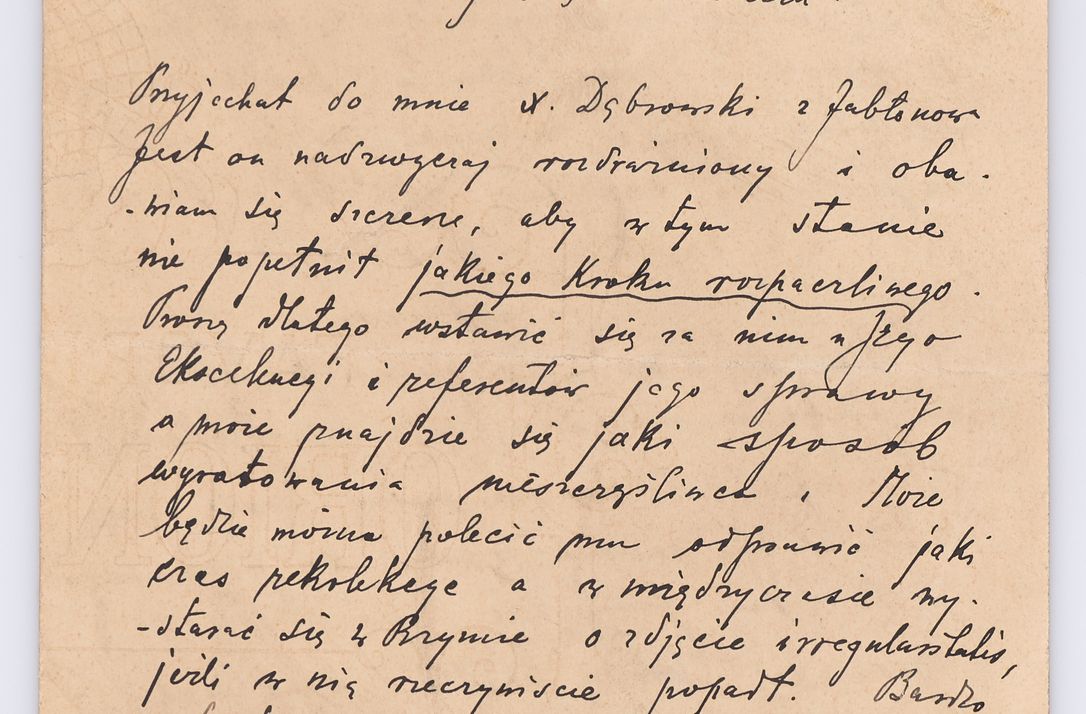 Przyjechał do mnie X. Dąbrowski z Jabłonowa
Jest on nadzwyczaj rozdrażniony i oba-
-wiam się szczerze, aby w tym stanie
nie popełnił jakiego kroku rozpaczliwego.
Proszę dlatego wstawić się za nim u Jego
Ekscelencyi i referentów jego sprawy
a może znajdzie się jaki sposób
wyratowania nieszczęśliwca. Może
będzie można polecić mu odprawić jaki
czas rekolekcye a w międzyczasie wy-
-starać się w Rzymie o zdjęcie irregularitatis,
jeżli w nią rzeczywiście popadł. Bardzo